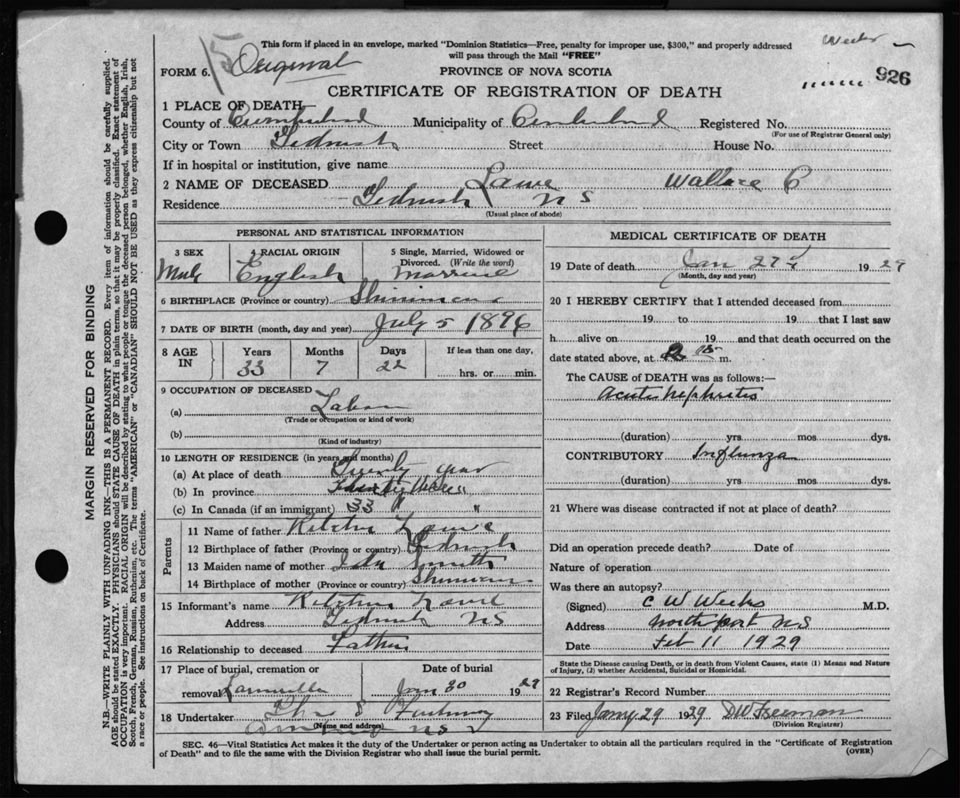 This form if placed in an envelope, marked "Dominion Statistics—Free, penalty for improper use, $300," and properly addressed
will pass through the Mail "FREE"
Weeks
15 Original
FORM 6.
PROVINCE OF NOVA SCOTIA
926
CERTIFICATE OF REGISTRATION OF DEATH
1 PLACE OF DEATH—
County of Cumberland Municipality of Cumberland Registered No.
(For use of Registrar General only)
City or Town Tidnish Street House No.
If in hospital or institution, give name
2 NAME OF DECEASED Wallace C
Residence Tidnish N S
(Usual place of abode)
PERSONAL AND STATISTICAL INFORMATION
3 SEX 4 RACIAL ORIGIN 5 Single, Married, Widowed or
Divorced. (Write the word)
Male English Married
6 BIRTHPLACE (Province or country)
7 DATE OF BIRTH (month, day and year) July 5 1896
8 AGE IN Years Months Days If less than one day,
33 7 22 hrs. or min.
9 OCCUPATION OF DECEASED
(a)
(Trade or occupation or kind of work)
(b)
(Kind of industry)
10 LENGTH OF RESIDENCE (in years and months)
(a) At place of death Twenty year
(b) In province
(c) In Canada (if an immigrant) 33 "
Parents
11 Name of father
12 Birthplace of father (Province or country) Tidnish
13 Maiden name of mother Ida Smith
14 Birthplace of mother (Province or country)
15 Informant's name
Address Tidnish NS
16 Relationship to deceased Father
17 Place of burial, cremation or Date of burial
removal Jan 30 1929
18 Undertaker
(Name and address)
MEDICAL CERTIFICATE OF DEATH
19 Date of death Jan 27 1929
(Month, day and year)
20 I HEREBY CERTIFY that I attended deceased from
19 to 19 that I last saw
h alive on 19 and that death occurred on the
date stated above, at m.
The CAUSE of DEATH was as follows:—
Acute Nephritis
(duration) yrs. mos. dys.
CONTRIBUTORY Influnza
(duration) yrs. mos. dys.
21 Where was disease contracted if not at place of death?
Did an operation precede death? Date of
Nature of operation
Was there an autopsy?
(Signed) C W Weeks M.D.
Address Northport NS
Date Feb 11 1929
State the Disease causing Death, or in death from Violent Causes, state (1) Means and Nature
of Injury, (2) whether Accidental, Suicidal or Homicidal.
22 Registrar's Record Number
23 Filed Jany 29 1929 DW Freeman
(Division Registrar)
SEC. 46—Vital Statistics Act makes it the duty of the Undertaker or person acting as Undertaker to obtain all the particulars required in the "Certificate of Registration
of Death" and to file the same with the Division Registrar who shall issue the burial permit.
(OVER)
MARGIN RESERVED FOR BINDING
N.B.—WRITE PLAINLY WITH UNFADING INK—THIS IS A PERMANENT RECORD. Every item of information should be carefully supplied.
AGE should be stated EXACTLY. PHYSICIANS should STATE CAUSE OF DEATH in plain terms, so that it may be properly classified. Exact statement of
OCCUPATION is very important. RACIAL ORIGIN will be described by stating to what people or tongue the deceased person belonged, whether English, Irish,
Scotch, French, German, Russian, Ruthenian, etc. The terms "AMERICAN" or "CANADIAN" SHOULD NOT BE USED as they express citizenship but not
a race or people. See instructions on back of Certificate.